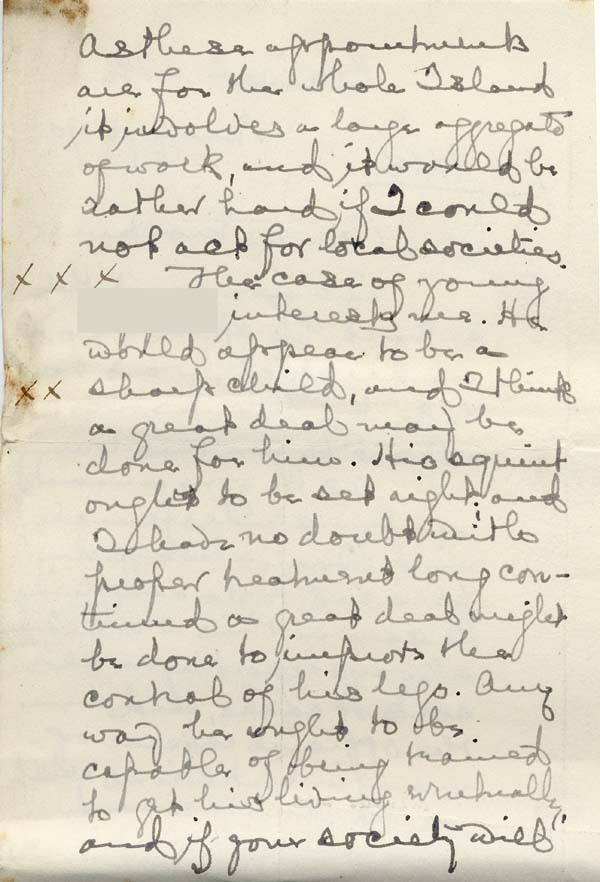 As these appointments
are for the whole Island
it involves a large aggregate
of work, and it would be
rather hard if I could
not act for local societies.
x x x The case of young
interests me. He
would appear to be a
x x sharp child, and I think
a great deal may be
done for him. His squint
ought to be set right, and
I have no doubt with
proper treatment long con-
tinued a great deal might
be done to improve the
control of his legs. Any
way he ought to be
capable of being trained
to get his living eventually,
and if your society will